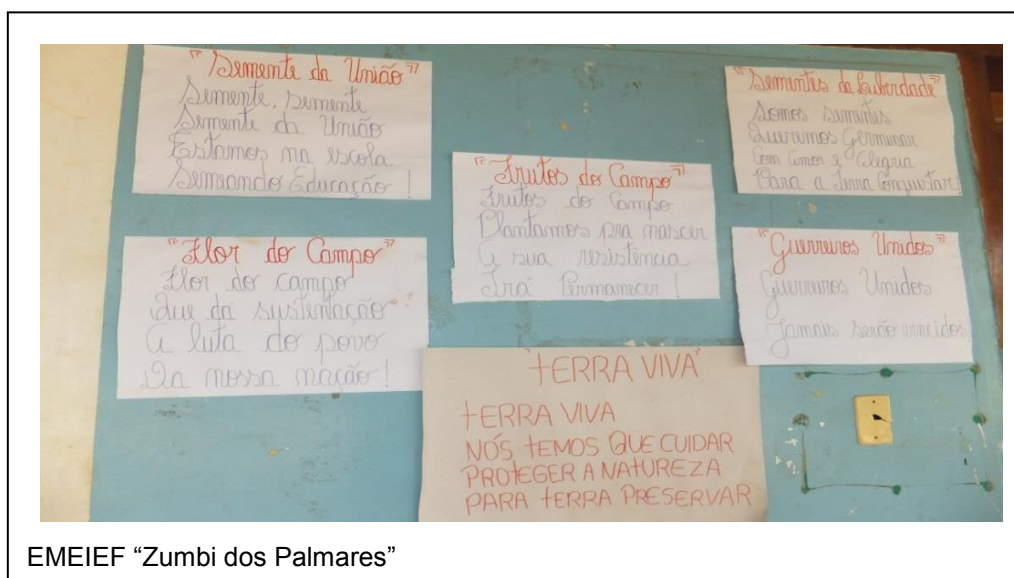 "Semente da União"
Semente, semente
Semente da União
Estamos na escola
Semeando Educação!
"Flor do Campo"
Flor do campo
Que dá sustentação
A luta do povo
Da nossa nação!
"Frutos do Campo"
Frutos do Campo
Plantamos pra nascer
A sua resistência
Irá Permanecer!
"TERRA VIVA"
TERRA VIVA
NÓS TEMOS QUE CUIDAR
PROTEGER A NATUREZA
PARA TERRA PRESERVAR
"Sementes da Liberdade"
Somos sementes
Queremos Germinar
Com Amor e Alegria
Para a Terra Conquistar!
"Guerreiros Unidos"
Guerreiros Unidos
Jamais serão vencidos
EMEIEF “Zumbi dos Palmares”